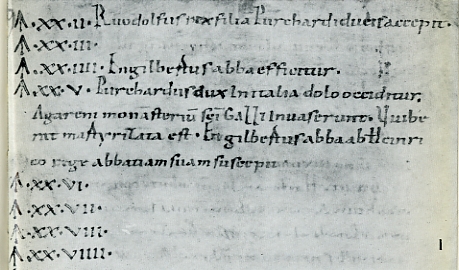 ↑.XX.II. Ruodolfus rex filia Purchardi ducis accepit.
↑.XX.III.
↑.XX.IIII. Engilbertus abba efficitur.
↑.XX.V. Purchardus dux In italia dolo occiditur.
Agareni monasteriū sc̄i Galli Invaserunt. Vuibe
rat martyrizata est. Engilbertus abba ab Heinri
co rege abbatiam suam suscepit
↑.XX.VI.
↑.XX.VII.
↑.XX.VIII.
↑.XX.VIIII.
1